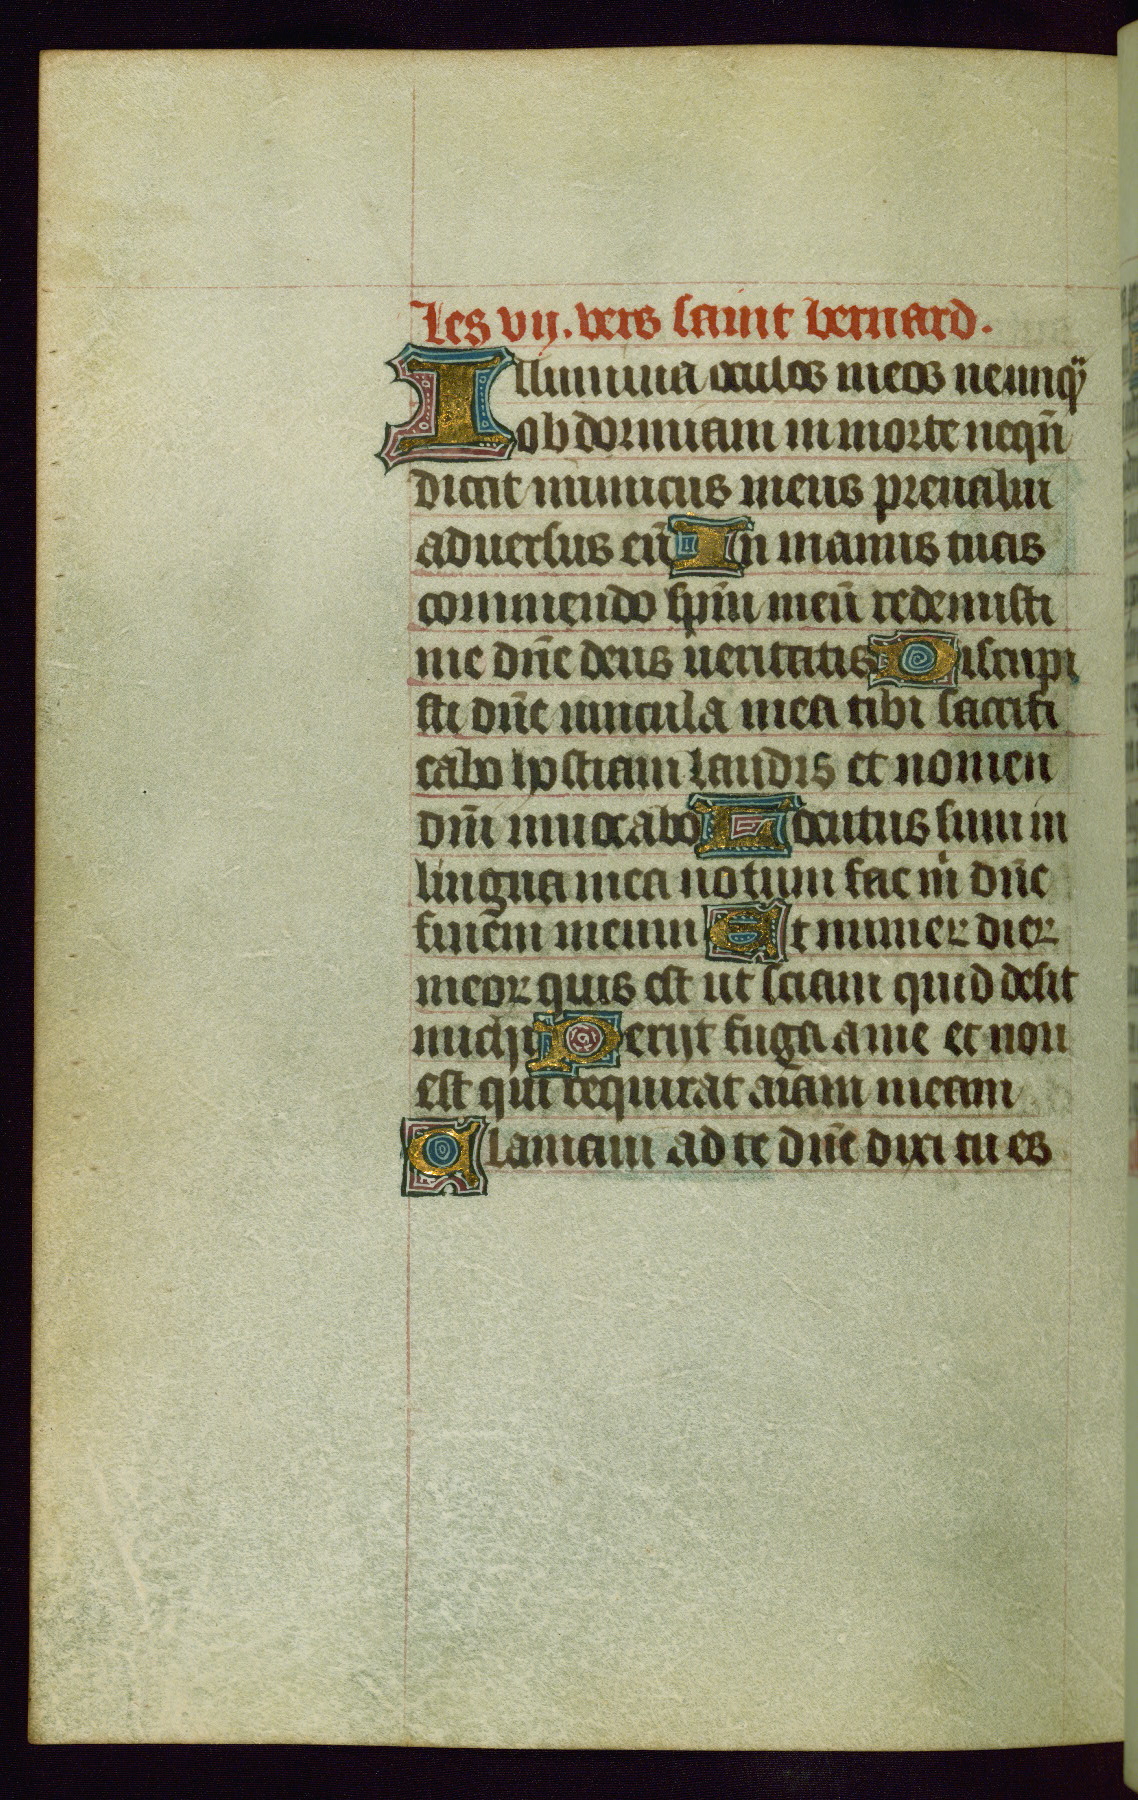 Les vij. vers saint bernard.
Illumina oculos meos neunqͣ
obdormiam in morte neqū
dicat inimicus meus preualui
aduersus eū In manus tuas
commendo sp̄m meū redemisti
me dn̄e deus ueritatis Disrupi
sti dn̄e uincula mea tibi sacrifi
cabo hostiam laudis et nomen
dn̄i inuocabo Locutus sum in
lingua mea notum fac m̄ dn̄e
finem meum Et numeꝝ dieꝝ
meoꝝ quis est ut sciam quid desit
michi Perijt fuga a me et non
est qui requirat aīam meam
Clamaui ad te dn̄e dixi tu es